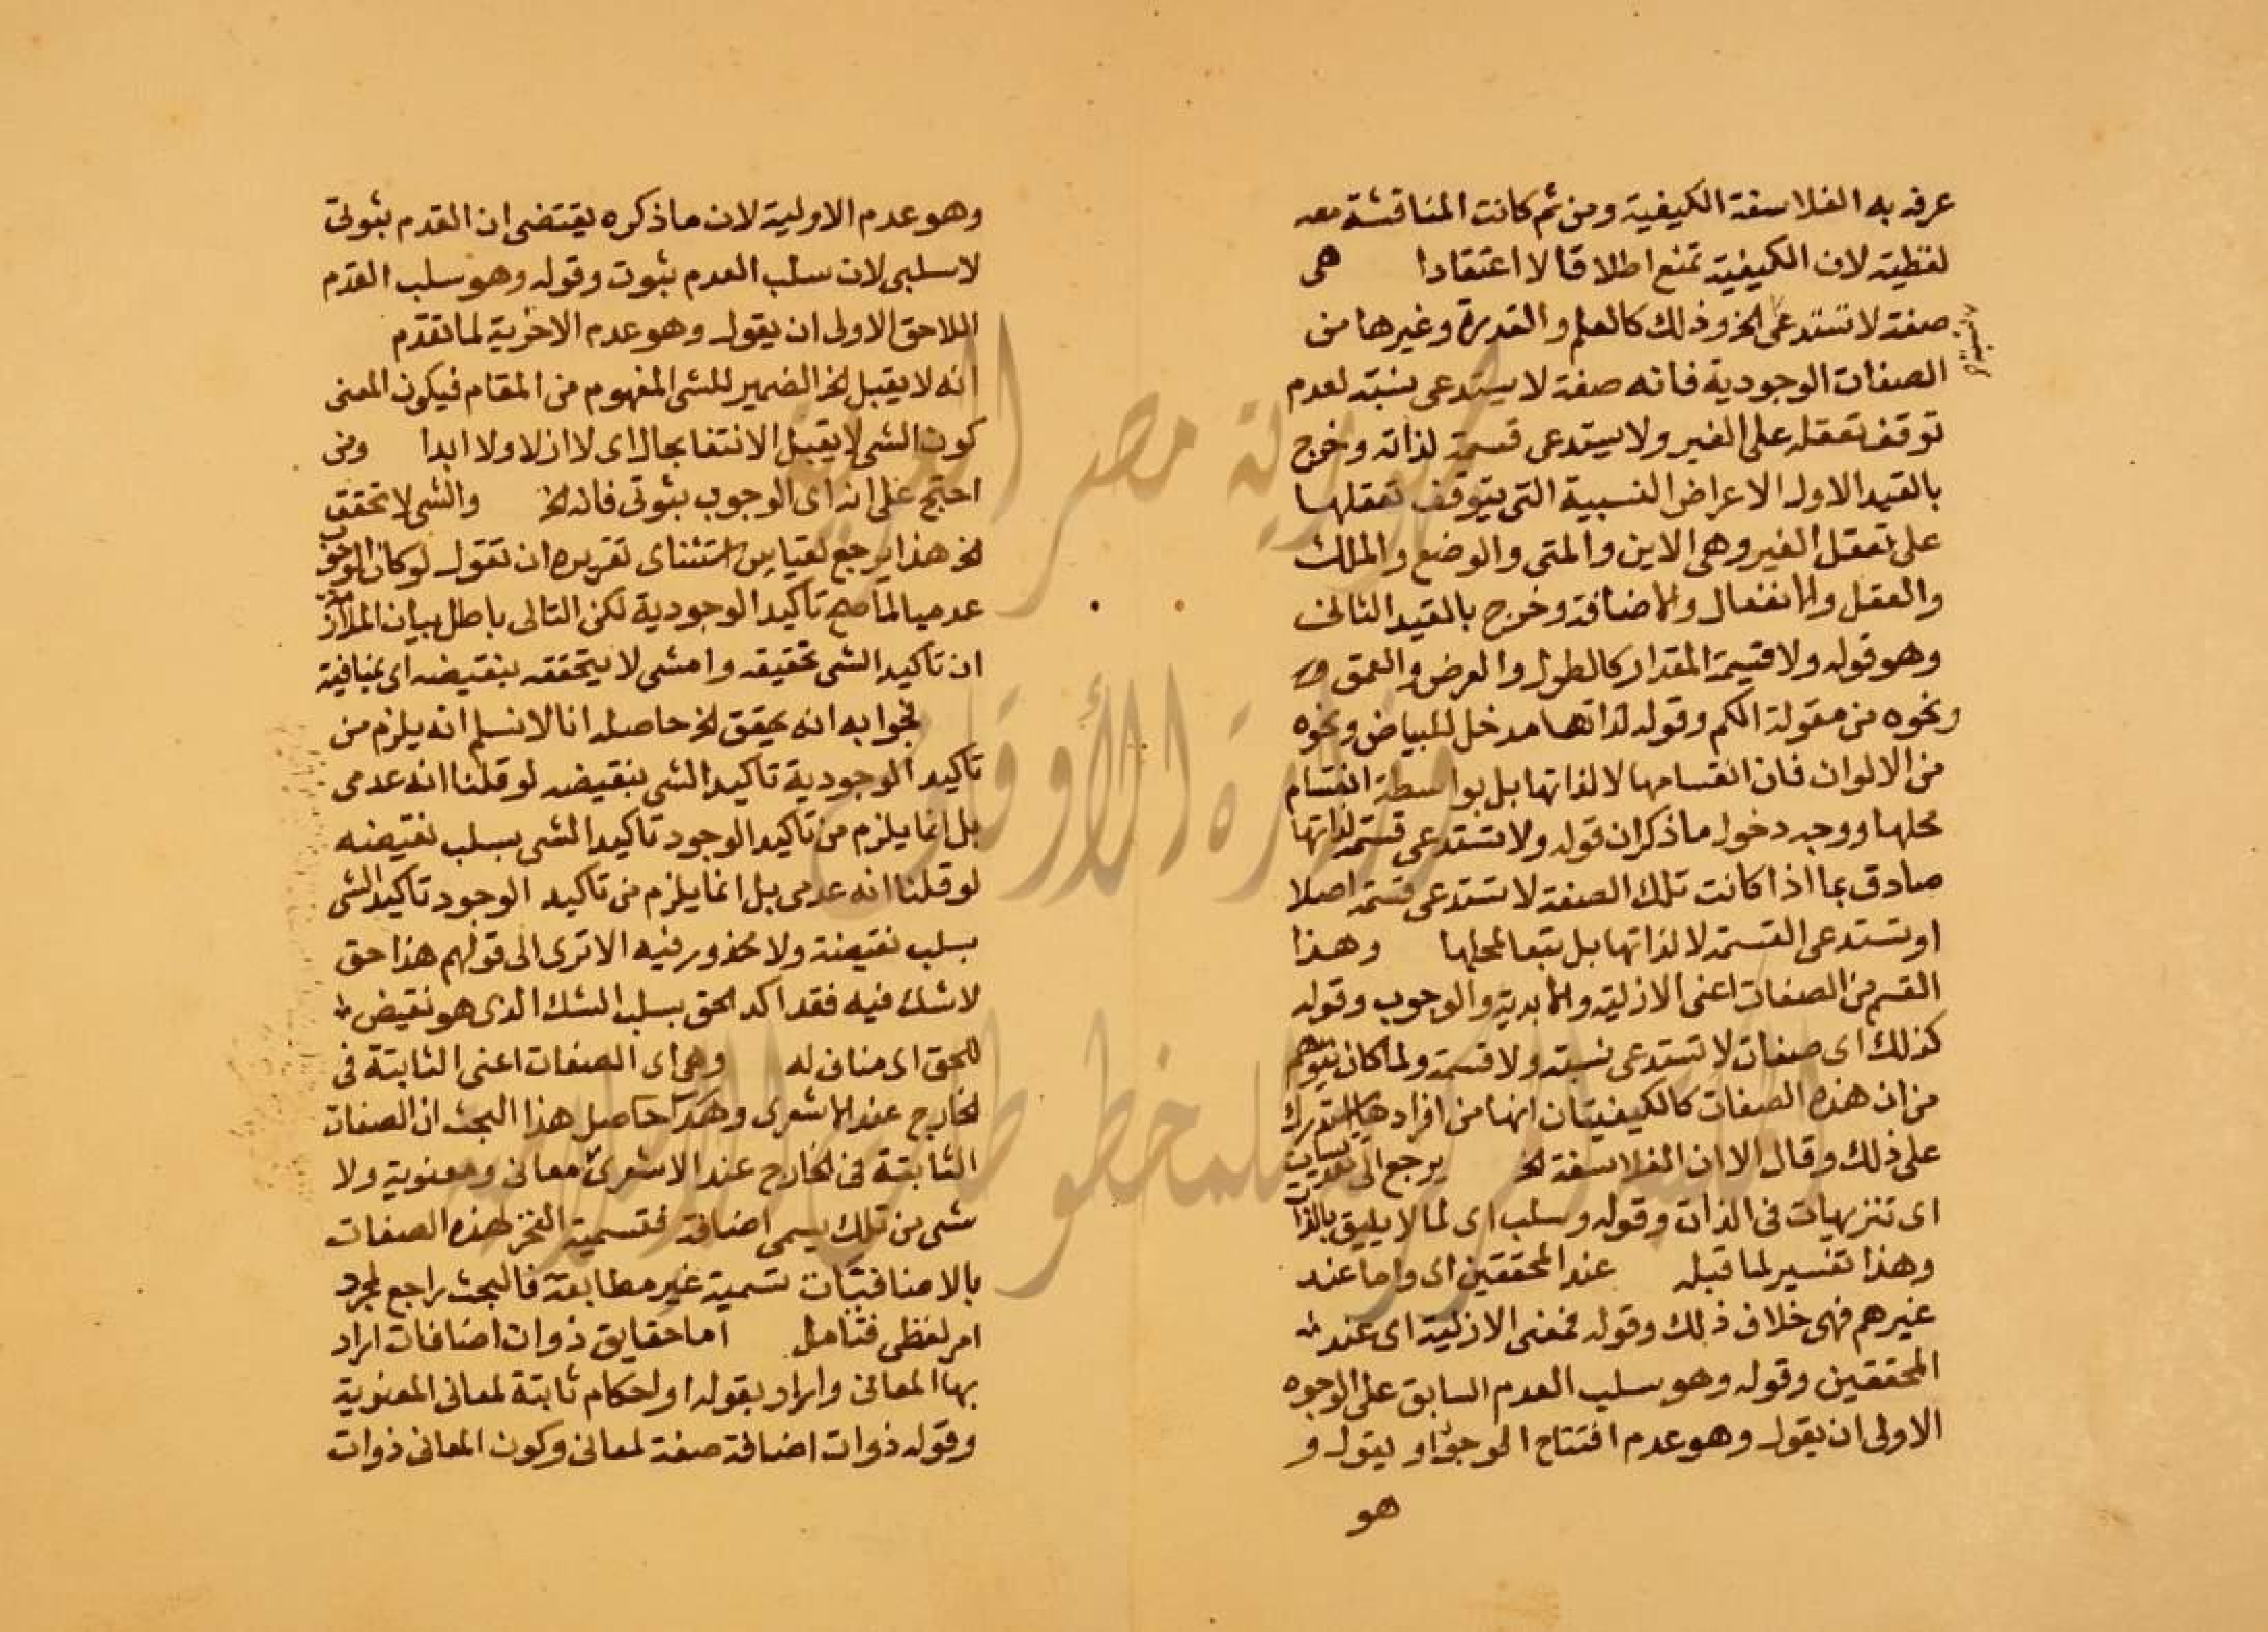 عرفه به الفلاسفة الكيفية ومن ثم كانت المناقشة معه
لفظية لان الكيفية تمنع اطلاقا لا اعتقادا هى
صفة لا تستدعى الخ وذلك كالعلم والقدرة وغيرها من
الصفات الوجودية فانه صفة لا يستدعى نسبة لعدم
توقف تعقله على الغير ولا يستدعى قسمة لذاته وخرج
بالقيد الاول الاعراض النسبية التى يتوقف تعقلها
على تعقل الغير وهى الاين والمتى والوضع والملك
والفعل والانفعال والاضافة وخرج بالقيد الثانى
وهو قوله ولا قسمة المقدار كالطول والعرض والعمق
ونحوه من مقولة الكم وقوله لذاتها مدخل للبياض ونحوه
من الالوان فان انقسامها لا لذاتها بل بواسطة انقسام
محلها ووجه دخول ما ذكر ان قوله ولا تستدعى قسمة لذاتها
صادق بما اذا كانت تلك الصفة لا تستدعى قسمة اصلا
او تستدعى القسمة لا لذاتها بل تبعا لمحلها وهذا
القسم من الصفات اعنى الازلية والابدية والوجوب وقوله
كذلك اى صفات لا تستدعى نسبة ولا قسمة ولما كان يتوهم
من ان هذه الصفات كالكيفيتان انها من افرادها استدرك
على ذلك وقال الا ان الفلاسفة الخ يرجع الى تقديسات
اى تنزيهات فى الذات وقوله وسلب اى لما لا يليق بالذات
وهذا تفسير لما قبله عند المحققين اى واما عند
غيرهم فهى خلاف ذلك وقوله فمعنى الازلية اى عند
المحققين وقوله وهو سلب العدم السابق على الوجوه
الاولى ان يقول وهو عدم افتتاح الوجود او يقول و
هو
وهو عدم الاولية لان ما ذكره يقتضى ان القدم ثبوتى
لا سلبى لان سلب العدم ثبوت وقوله وهو سلب العدم
اللاحق الاولى ان يقول وهو عدم الاخرية لما تقدم
انه لا يقبل الخ الضمير للشى المفهوم من المقام فيكون المعنى
كون الشى لا يقبل الانتفا بحال اى لا ازلا ولا ابدا ومن
احتج على انه اى الوجوب ثبوتى فانه الخ والشى لا تحقق
الخ هذا يرجع لقياس استثناى تقريره ان تقول لو كان الوجوب
عدميا لما صح تاكيد الوجودية لكن التالى باطل بيان الملازمة
ان تاكيد الشى تحقيقه وامشى لا يتحققه بنقيضه اى بمنافيه
فجوابه انه يحقق الخ حاصله انا لا نسلم انه يلزم من
تاكيد الوجودية تاكيد الشى بنقيضه لو قلنا انه عدمى
بل انما يلزم من تاكيد الوجود تاكيد الشى بسلب نقيضه
لو قلنا انه عدمى بل انما يلزم من تاكيد الوجود تاكيد الشى
بسلب نقيضه ولا محذور فيه الا ترى الى قولهم هذا حق
لا شك فيه فقد اكد الحق بسلب الشك الذى هو نقيض
للحق اى مناف له وهى اى الصفات اعنى الثابتة فى
الخارج عند الاشعرى وهكذا حاصل هذا البحث ان الصفات
الثابتة فى الخارج عند الاشعرى معانى ومعنوية ولا
شى من تلك يسمى اضافة فتسمية الفخر لهذه الصفات
بالاضافيات تسمية غير مطابقة فالبحث راجع لمجرد
امر لفظى فتامل اما حقايق ذوات اضافات اراد
بها المعانى واراد بقوله او احكام ثابتة لمعانى المعنوية
وقوله ذوات اضافة صفة لمعانى وكون المعانى ذوات
جمهورية مصر العربية
وزارة الأوقاف